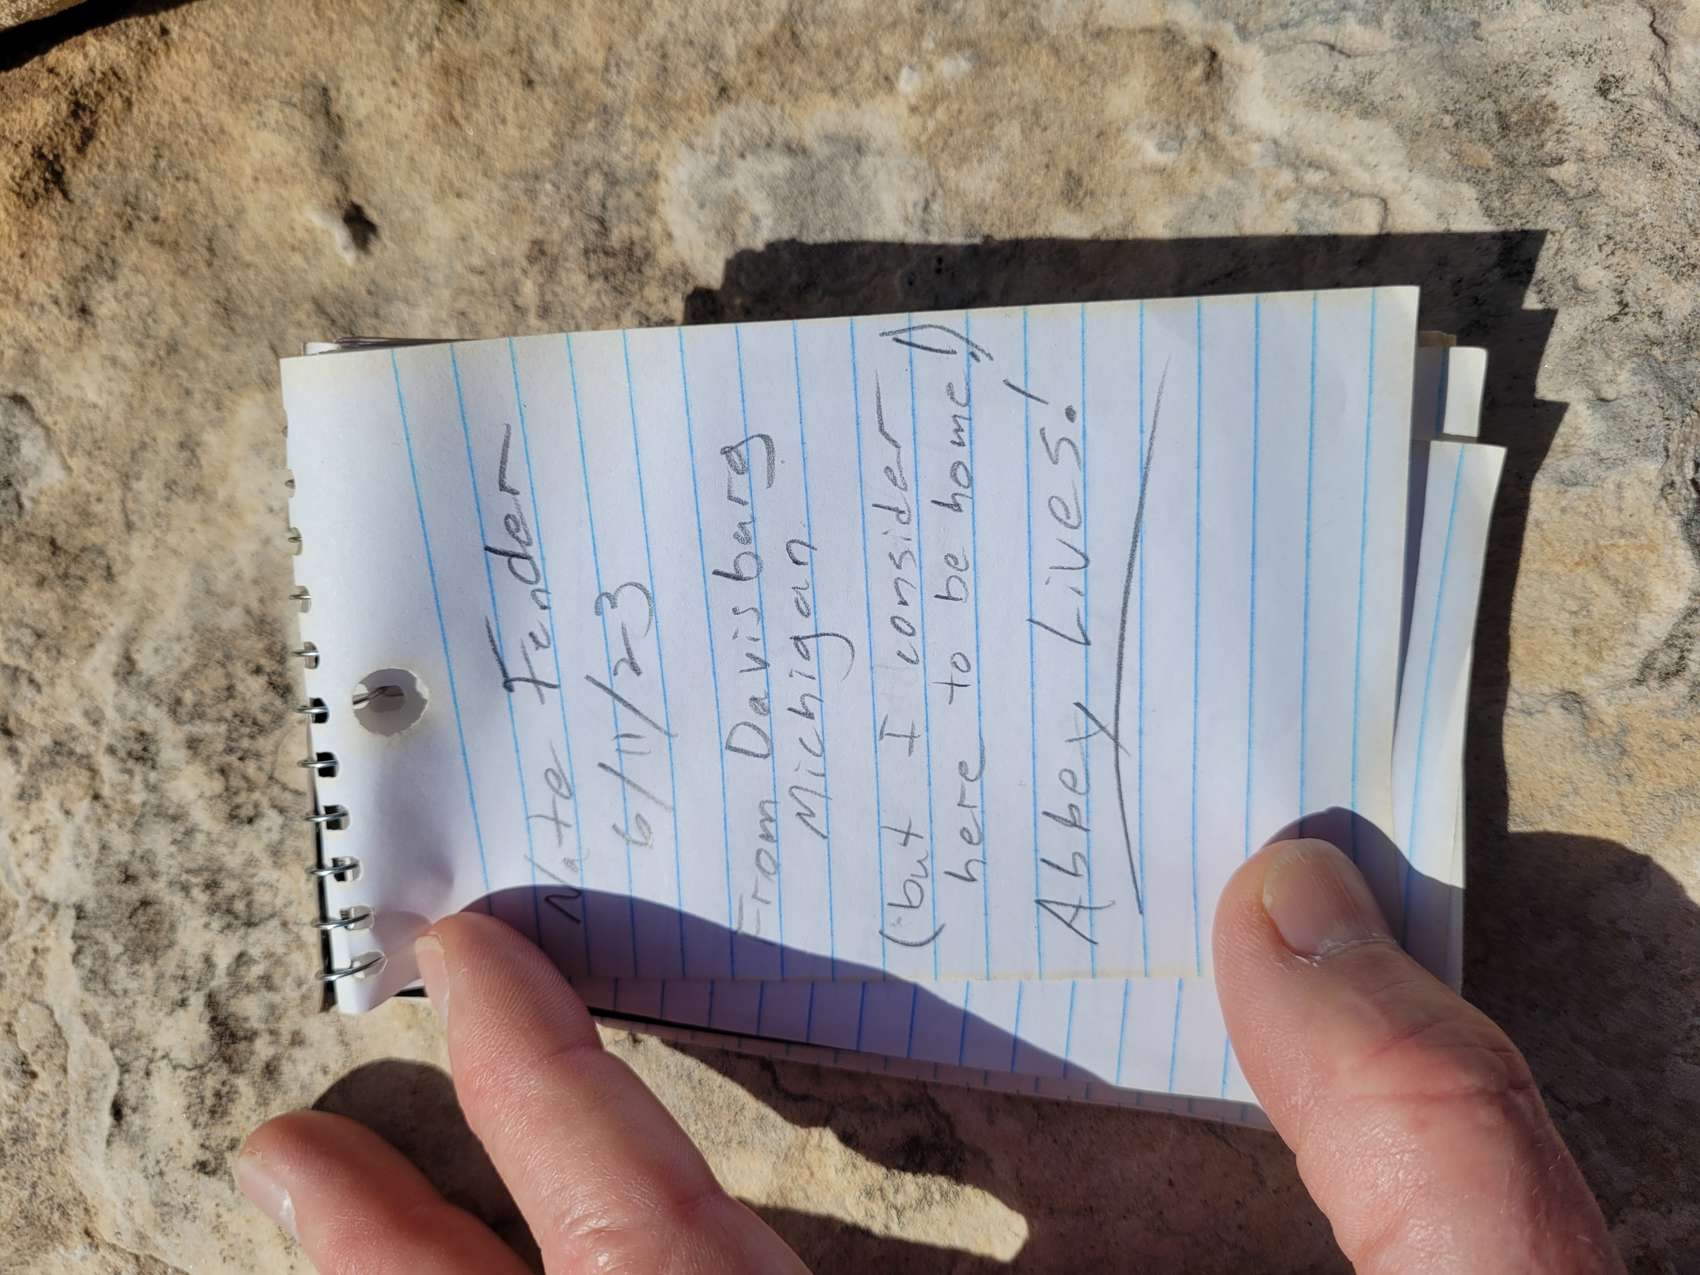 Nate Fender
6/11/23
From Davisburg
Michigan
(but I consider
here to be home!)
Abbey Lives!